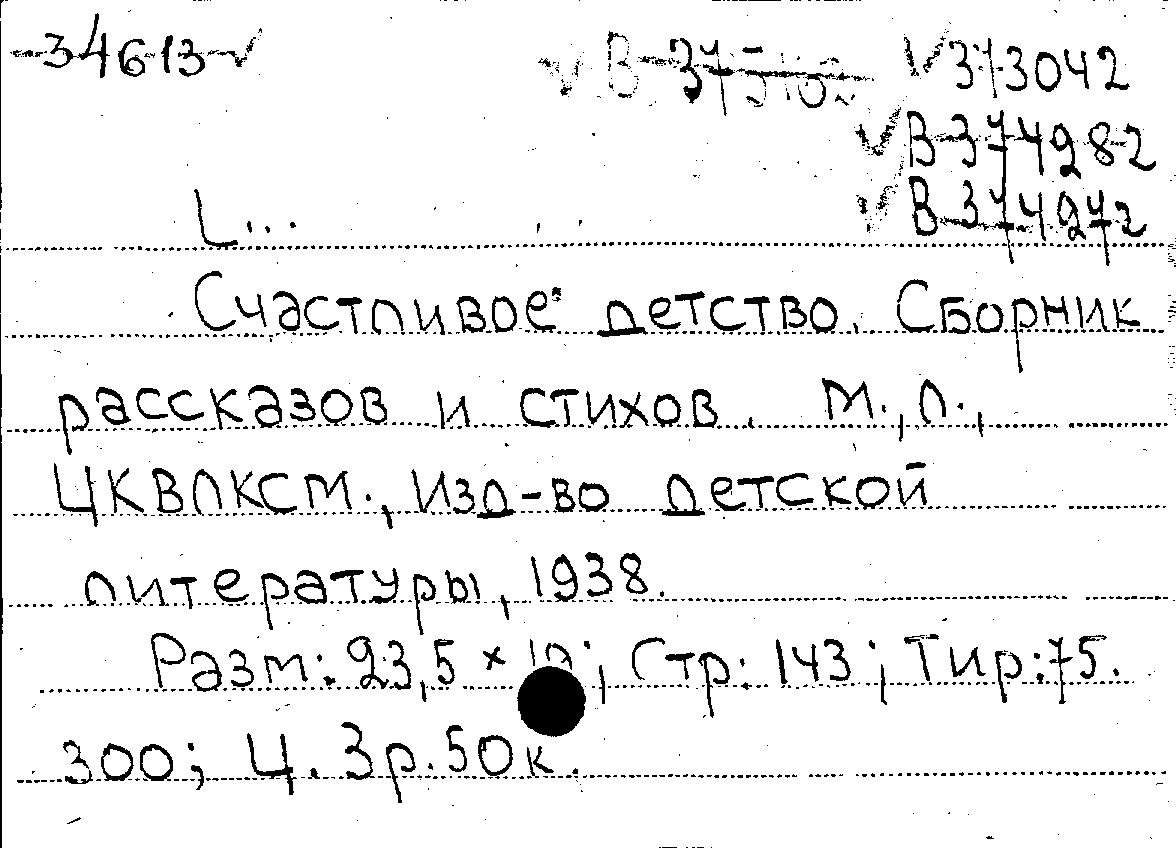 34613 373042
В 374282
L... В 374272
Счастливое детство. Сборник
рассказов и стихов. М., Л.,
ЦКВЛКСМ., Изд-во детской
литературы, 1938.
Разм: 23,5 × ; Стр: 143; Тир: 75.
300; Ц. 3р. 50к.